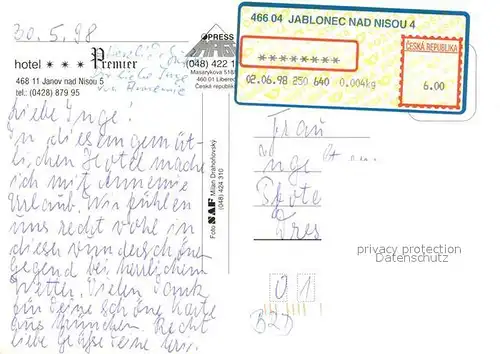 30.5.98
hotel Premier
* * *
468 11 Janov nad Nisou 5
tel.: (0428) 879 95
PRESS
(048) 422 1
Masarykova 518/
460 01 Liberec
Česká republika
Foto SAF Milan Drahoňovský
(048) 424 310
466 04 JABLONEC NAD NISOU 4
* * * * * * * *
ČESKÁ REPUBLIKA
02.06.98 250 640 0.004kg
6.00
Liebe Inge!
In diesem gemüt-
lichen Hotel mache
ich mit Annemie
Urlaub. Wir fühlen
uns recht wohl in
dieser wunderschönen
Gegend bei herrlichem
Wetter. Vielen Dank
für Deine schöne Karte
aus München. Recht
liebe Grüße Deine
Frau
Inge
Dres
privacy protection
Datenschutz
0 1